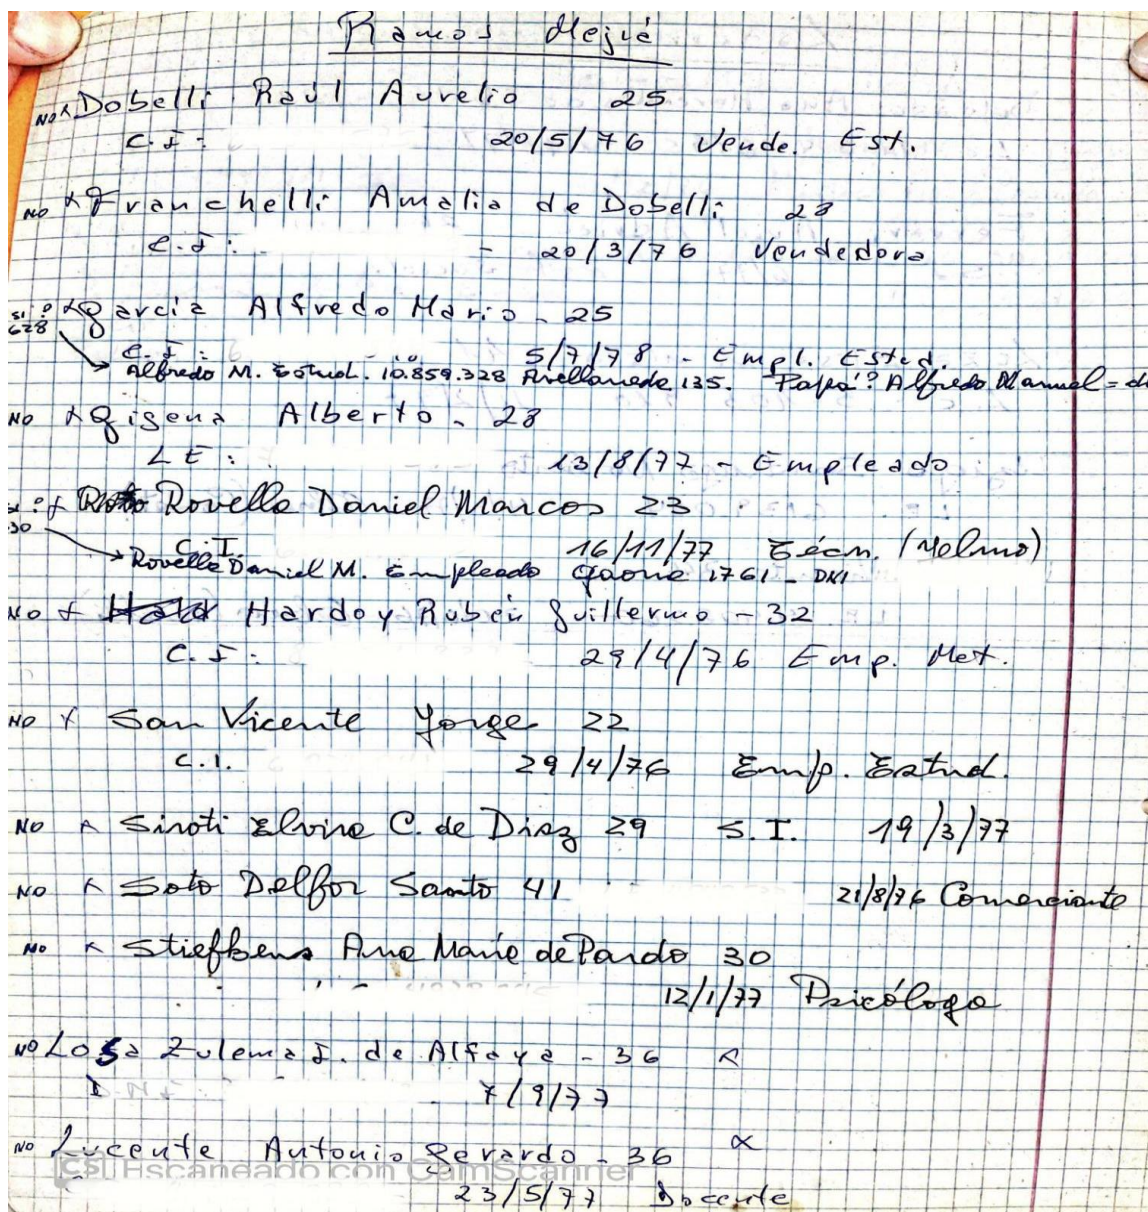 Ramos Mejia
NO x Dobelli Raúl Aurelio 25
C.I: 20/5/76 Vende. Est.
NO x Franchelli Amalia de Dobelli 23
C.I: - 20/3/76 Vendedora
si: ? x Garcia Alfredo Mario - 25
628
C.I: 5/7/78 - Empl. Estud.
Alfredo M. Estud. 10.859.328 Avellaneda 135. Papá? Alfredo Manuel =
NO x Gisena Alberto - 23
LE: 13/8/77 - Empleado
x Rovella Daniel Marcos 23
30
C.I. 16/11/77 Técn. (Yelmo)
Rovella Daniel M. Empleado Gaona 1761 - DNI
NO x Hardoy Rubén Guillermo - 32
C.I: 29/4/76 Emp. Met.
NO x San Vicente Jorge 22
C.I. 29/4/76 Emp. Estud.
NO x Siroti Elvira C. de Diaz 29 S.I. 19/3/77
NO x Soto Delfor Santo 41 21/8/76 Comerciante
NO x Stiefkens Ana Maria de Pardo 30
12/1/77 Psicóloga
NO Losa Zulema J. de Alfaya - 36 x
D.N.I. 7/9/77
NO Lucente Antonio Gerardo - 36 x
CS Escaneado con CamScanner
23/5/77 Docente